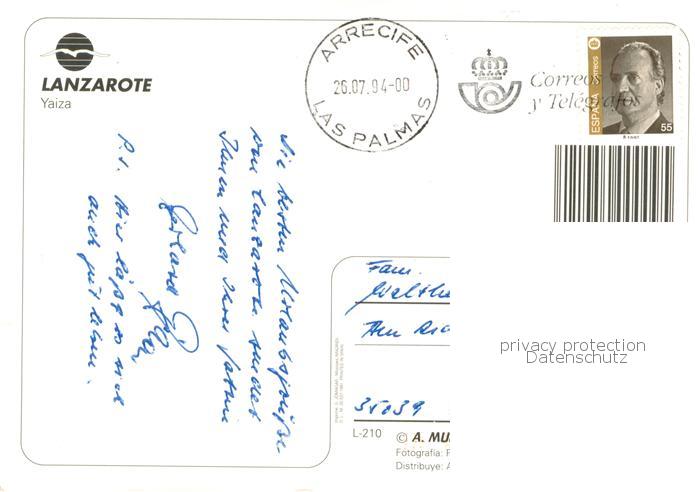 LANZAROTE
Yaiza
ARRECIFE
26.07.94-00
LAS PALMAS
Correos
y Telégrafos
ESPAÑA
Correos
55
Die besten Urlaubsgrüße
von Lanzarote sendet
Ihnen und Ihrer Familie
Gerhard
P.S. Hier läßt es sich
auch gut leben.
Fam.
35039
L-210
© A. MU
Fotografía: F
Distribuye: A
privacy protection
Datenschutz